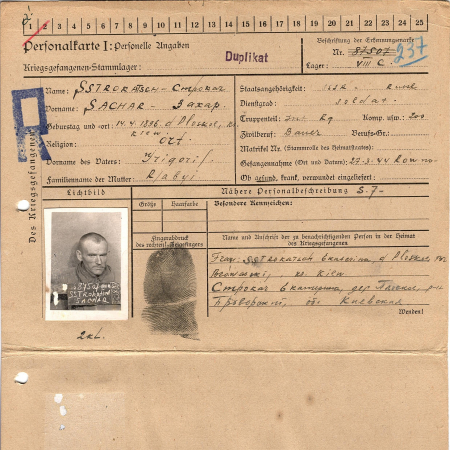 1 2 3 4 5 6 7 8 9 10 11 12 13 14 15 16 17 18 19 20 21 22 23 24 25
Personalkarte I: Personelle Angaben
Duplikat
Beschriftung der Erkennungsmarke
Nr. 87507 237
Kriegsgefangenen-Stammlager:
Lager: VIII C.
Des Kriegsgefangenen
Name: SSTROKATSCH - Строкач
Vorname: SACHAR - Захар.
Geburtstag und -ort: 14.4.1896. d Ploskoe,
Kiew
Religion: Ort.
Vorname des Vaters: Grigorij.
Familienname der Mutter: Rjabyj
Staatsangehörigkeit:
Dienstgrad: soldat.
Truppenteil: Inf. Rg Komp. usw.: 200
Zivilberuf: Bauer Berufs-Gr.:
Matrikel Nr. (Stammrolle des Heimatstaates):
Gefangennahme (Ort und Datum):
Ob gesund, krank, verwundet eingeliefert:
Lichtbild
Nähere Personalbeschreibung
Größe Haarfarbe
Besondere Kennzeichen:
Fingerabdruck
des rechten Zeigefingers
Name und Anschrift der zu benachrichtigenden Person in der Heimat
des Kriegsgefangenen
Frau: SSTROKATSCH Ekaterina d Ploskoe
Kiew
Строкач Екатерина, дер Плоское,
Киевская
Wenden!
SSTROKATSCH
SACHAR